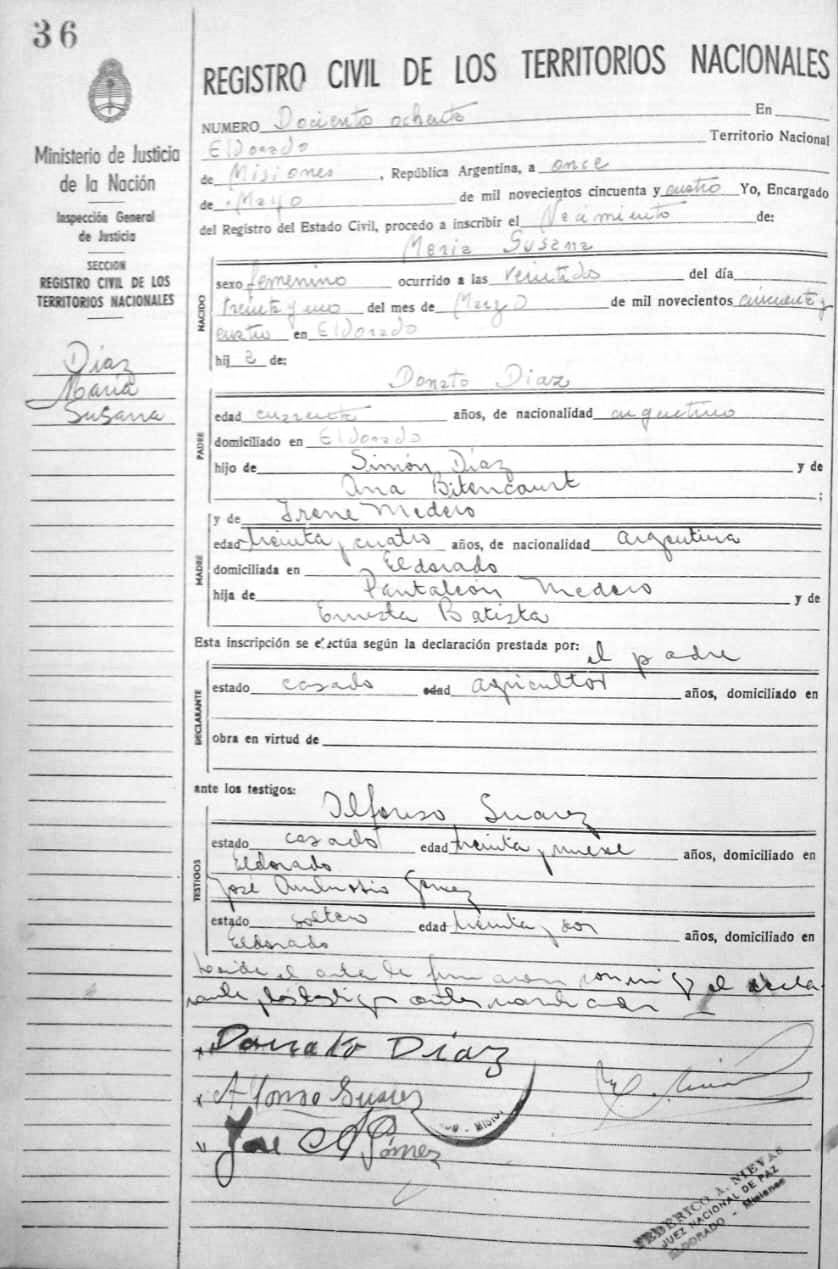 36
Ministerio de Justicia
de la Nación
Inspección General
de Justicia
SECCION
REGISTRO CIVIL DE LOS
TERRITORIOS NACIONALES
Díaz
María
Susana
REGISTRO CIVIL DE LOS TERRITORIOS NACIONALES
NUMERO Dociento ochenta En
ElDorado Territorio Nacional
de Misiones, República Argentina, a once
de Mayo de mil novecientos cincuenta y cuatro Yo, Encargado
del Registro del Estado Civil, procedo a inscribir el Nacimiento de:
Maria Susana
NACIDO
sexo femenino ocurrido a las veintidos del día
treinta y uno del mes de Marzo de mil novecientos cincuenta y
cuatro en ElDorado
hij a de:
Donato Diaz
PADRE
edad cuarenta años, de nacionalidad argentino
domiciliado en ElDorado
hijo de Simón Díaz y de
Ana Bitencourt ;
MADRE
y de Irene Medero
edad treinta y cuatro años, de nacionalidad Argentina
domiciliada en Eldorado
hija de Pantaleón Medero y de
Ernesta Batista
Esta inscripción se efectúa según la declaración prestada por: el padre
DECLARANTE
estado casado edad agricultor años, domiciliado en
obra en virtud de
ante los testigos:
Alfonso Suarez
TESTIGOS
estado casado edad treinta y nueve años, domiciliado en
Eldorado
José Ambrosio Gomez
estado soltero edad treinta y dos años, domiciliado en
Eldorado
el acta de firmaron conmigo el decla
rante y los testigos antes
Donato Díaz
Alfonso Suarez
Jose A Gómez
FEDERICO A. NIEVAS
JUEZ NACIONAL DE PAZ
ELDORADO - Misiones